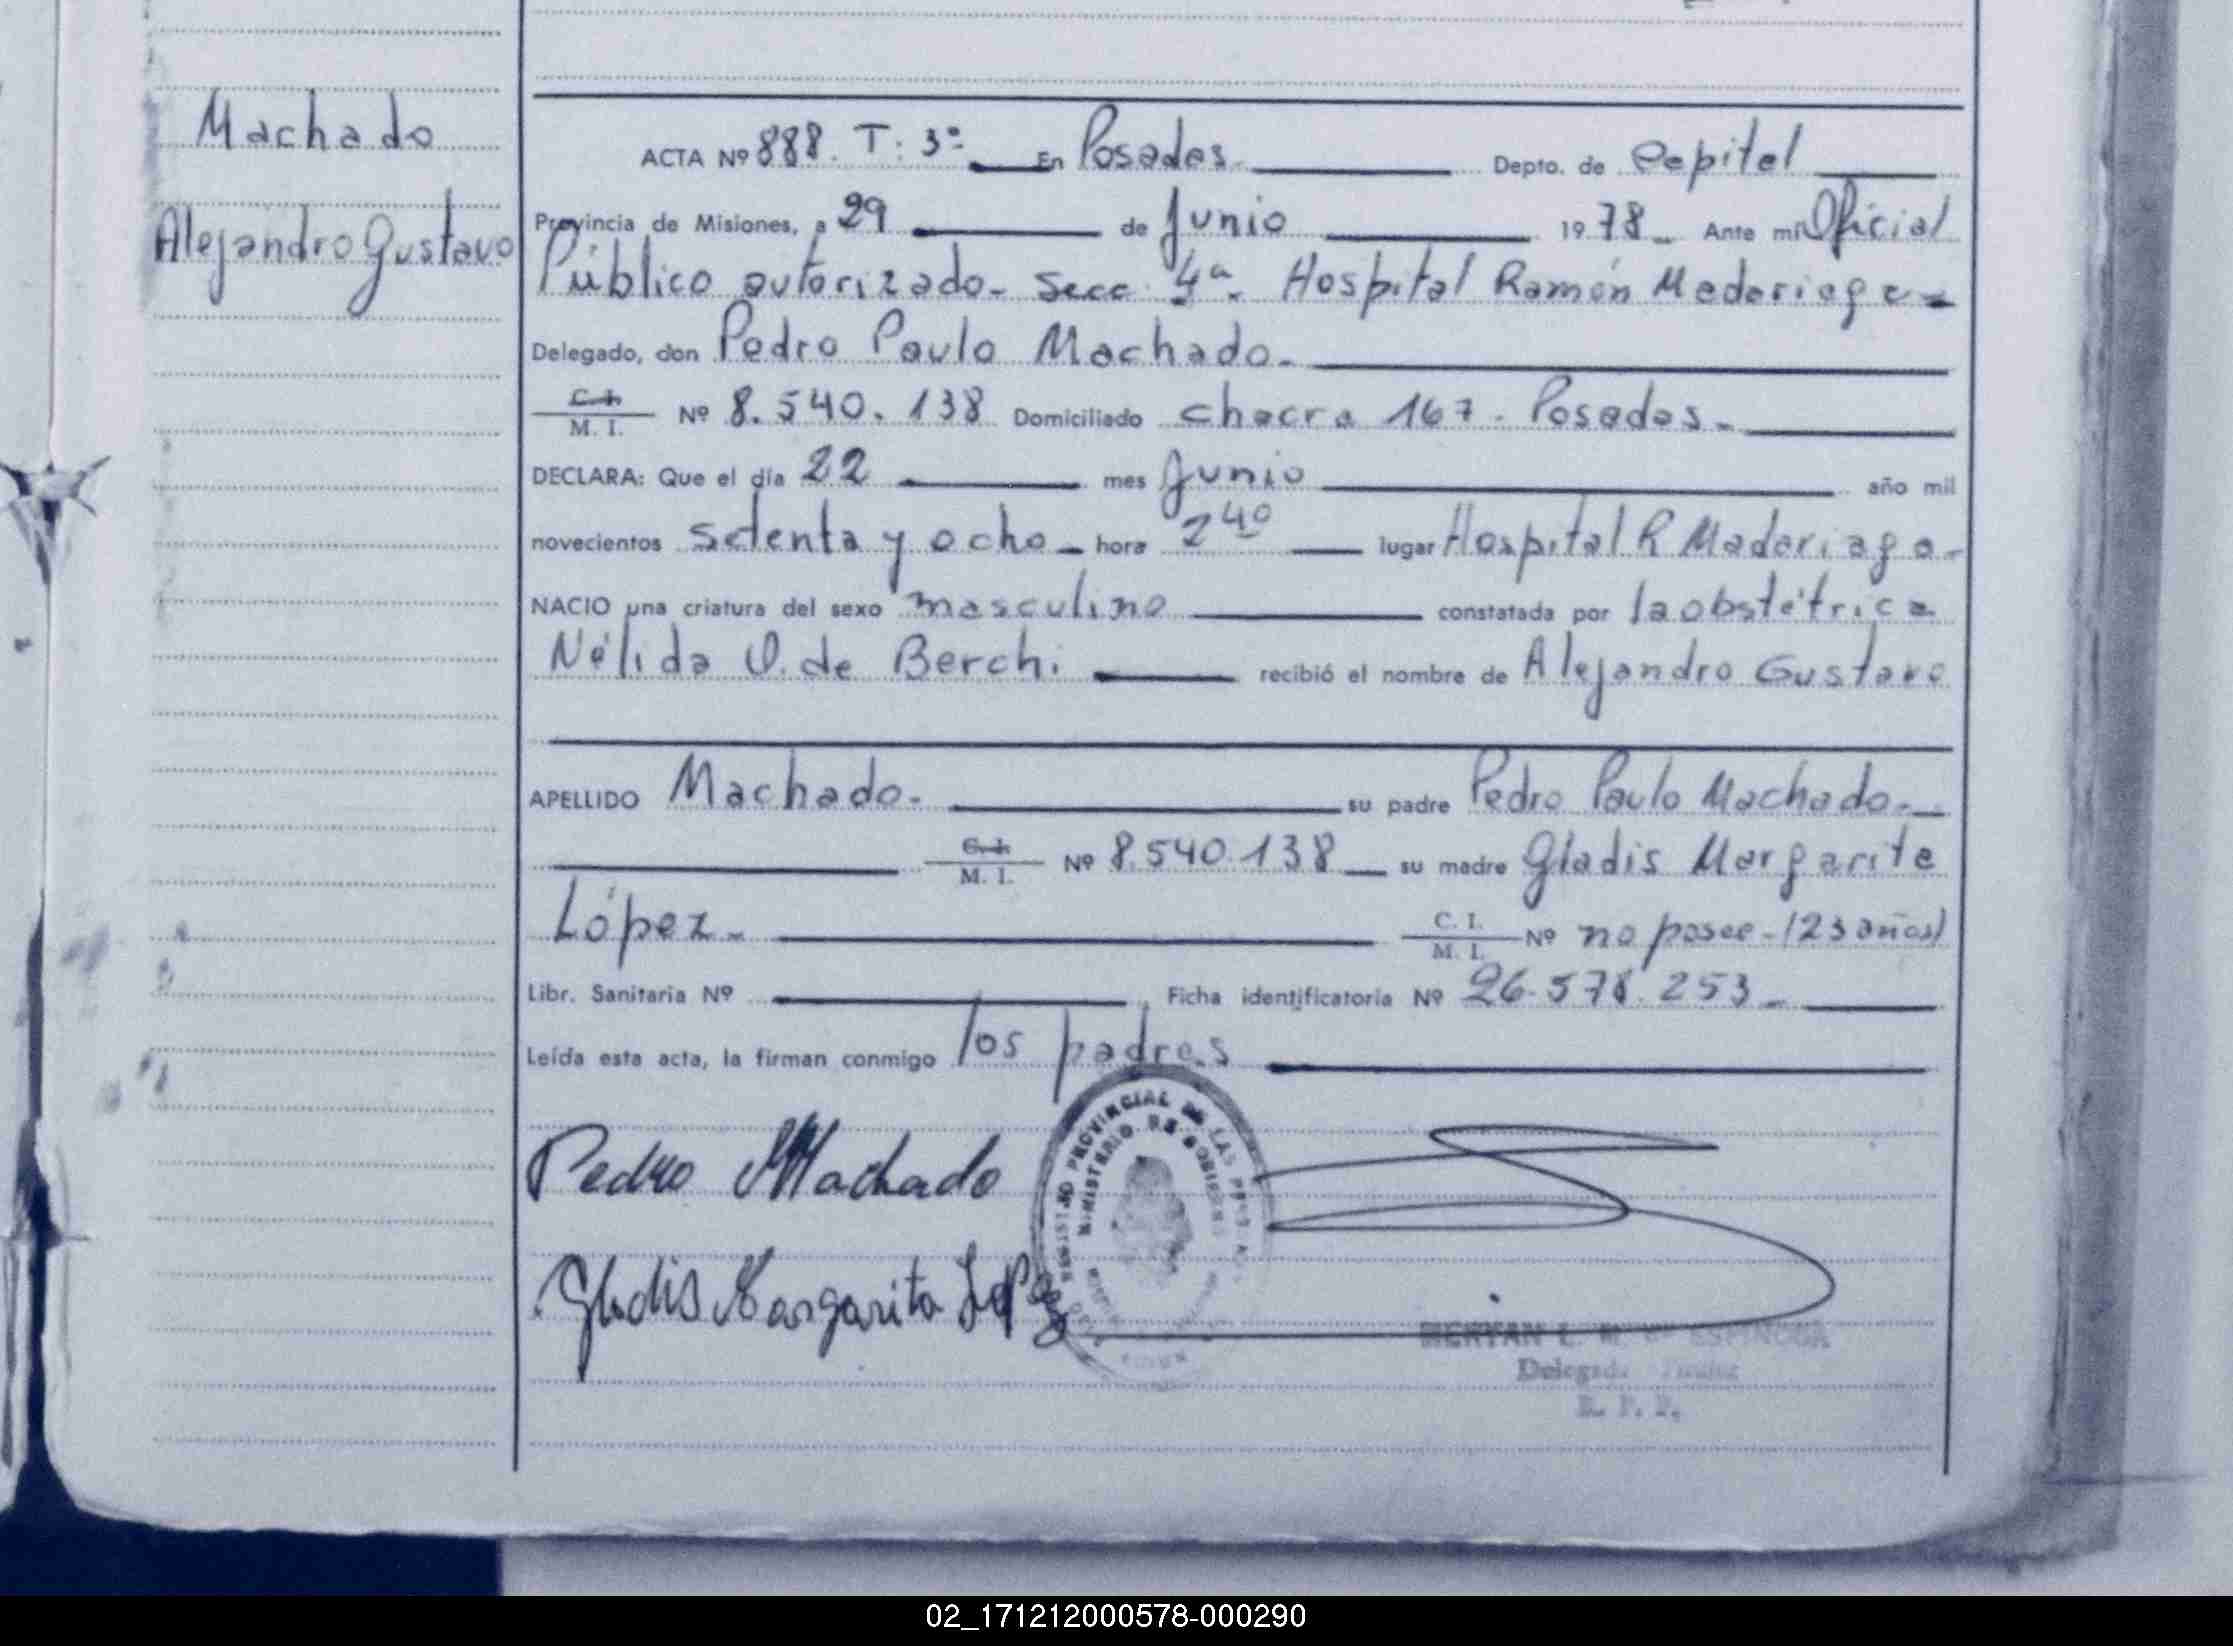 Machado
Alejandro Gustavo
ACTA Nº 888. T: 3º En Posadas. Depto. de Capital
Provincia de Misiones, a 29 de Junio 1978 Ante mi Oficial
Público autorizado. Secc 4ª. Hospital Ramón Madariaga
Delegado, don Pedro Paulo Machado.
C. I. / M. I. Nº 8.540.138 Domiciliado chacra 167. Posadas.
DECLARA: Que el día 22 mes Junio año mil
novecientos setenta y ocho hora 2 40 lugar Hospital R Madariaga.
NACIO una criatura del sexo masculino constatada por la obstétrica
Nélida O. de Berchi recibió el nombre de Alejandro Gustavo
APELLIDO Machado. su padre Pedro Paulo Machado.
C. I. / M. I. Nº 8.540.138 su madre Gladis Margarita
López. C. I. / M. I. Nº no posee (23 años)
Libr. Sanitaria Nº Ficha identificatoria Nº 26.578.253
Leída esta acta, la firman conmigo los padres
Pedro Machado
REGISTRO PROVINCIAL DE LAS PERSONAS
MINISTERIO DE GOBIERNO
Gladis Margarita López
ESPINOSA
Delegada
R. P. P.
02_171212000578-000290